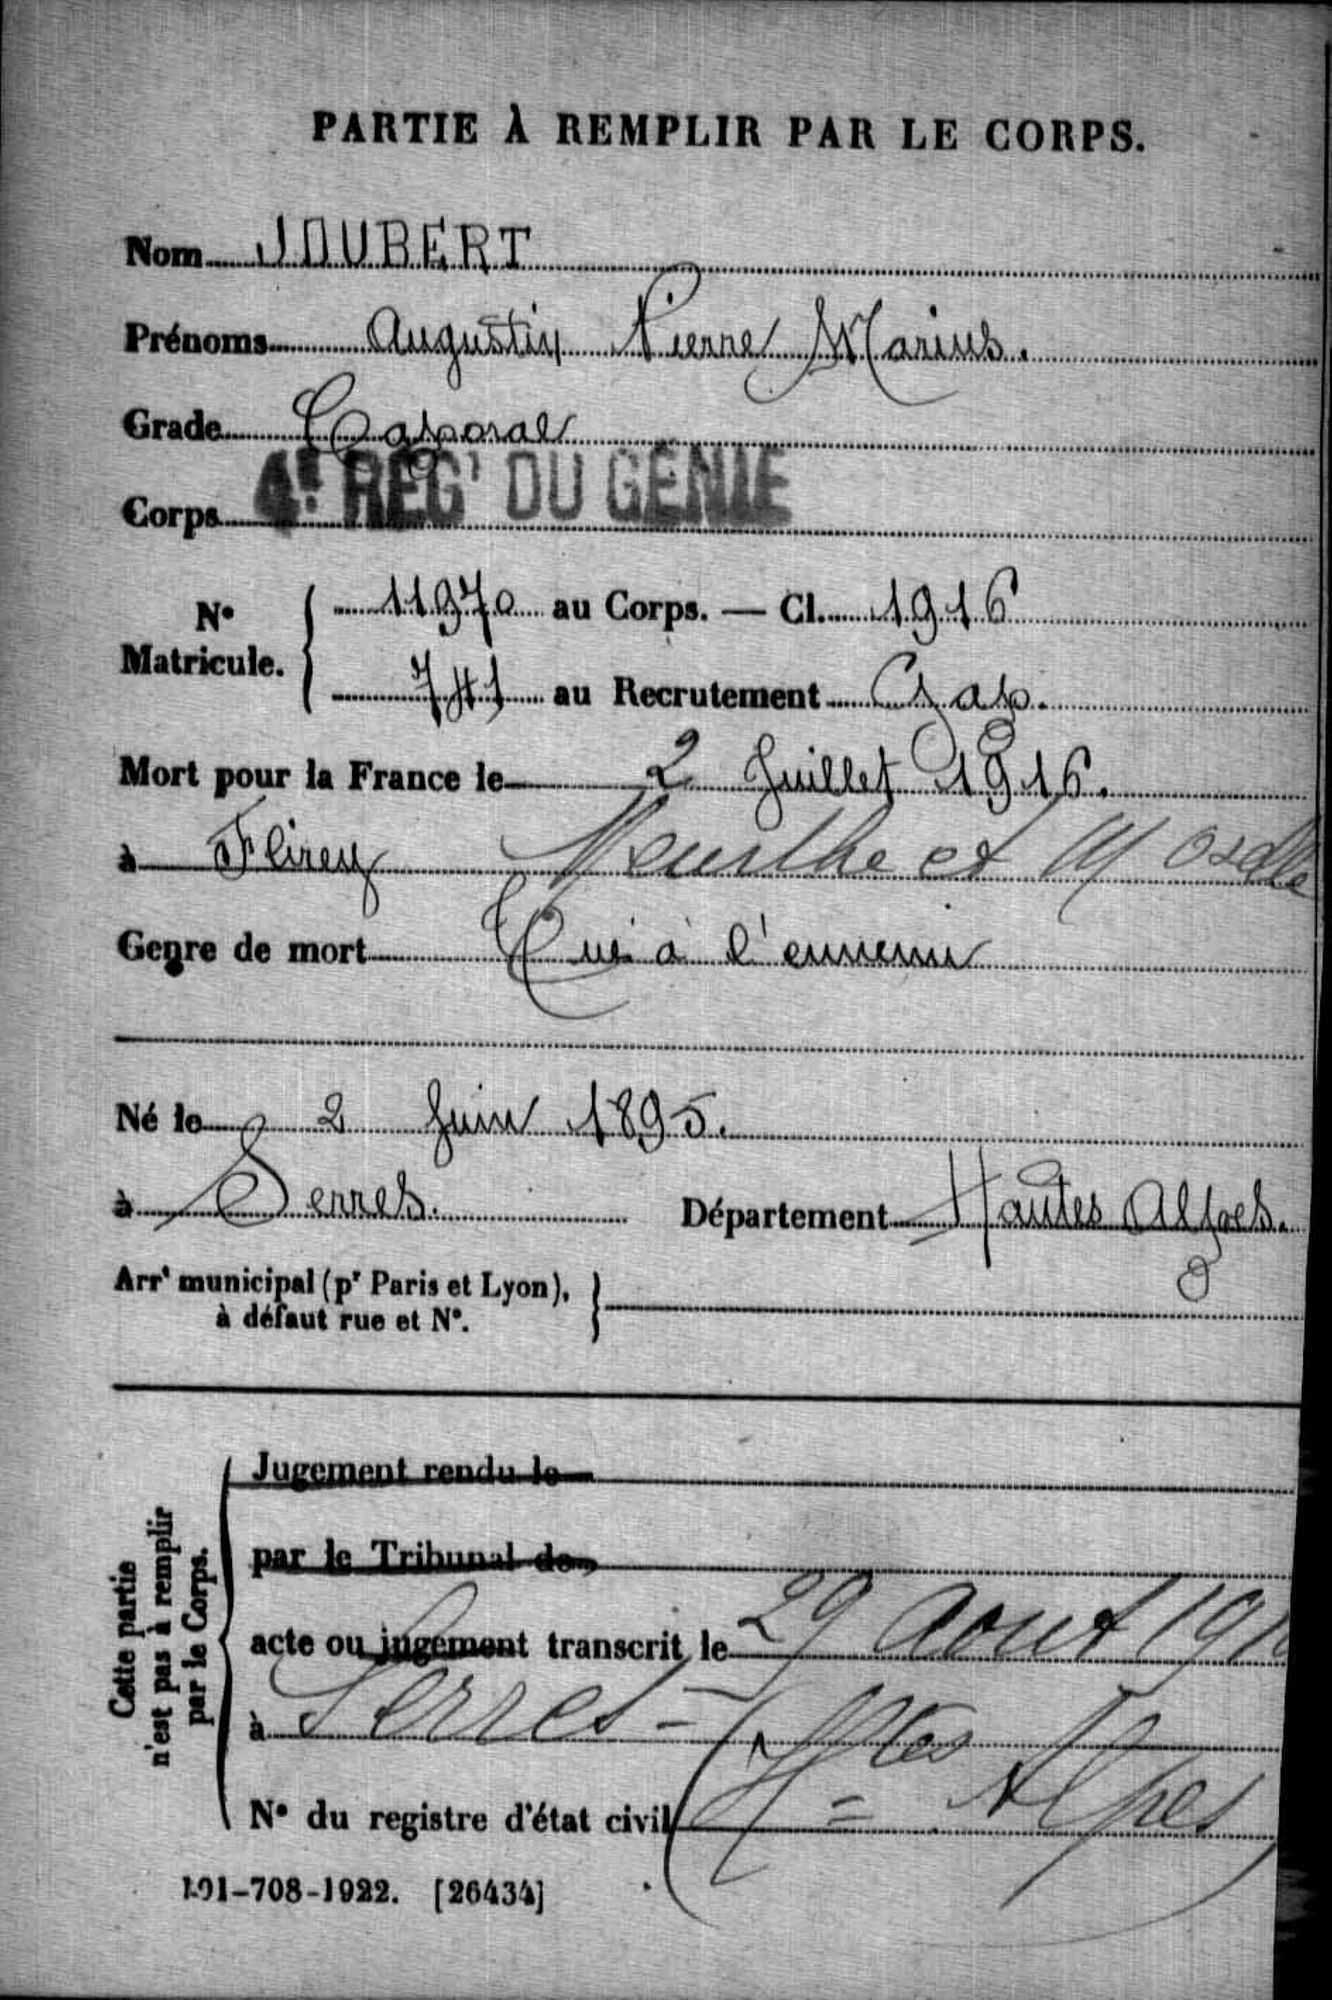 PARTIE À REMPLIR PAR LE CORPS.
Nom JOUBERT
Prénoms Augustin Pierre Marius.
Grade Caporal
Corps 4e REGt DU GÉNIE
No Matricule. 11970 au Corps. — Cl. 1916
741 au Recrutement Gap.
Mort pour la France le 2 Juillet 1916.
à Flirey Meurthe et Moselle
Genre de mort Tué à l'ennemi
Né le 2 Juin 1895.
à Serres. Département Hautes Alpes.
Arrt municipal (pr Paris et Lyon),
à défaut rue et No.
Cette partie
n'est pas à remplir
par le Corps.
Jugement rendu le
par le Tribunal de
acte ou jugement transcrit le 29 Aout
à Serres – (Htes Alpes)
No du registre d'état civil
101-708-1922. [26434]